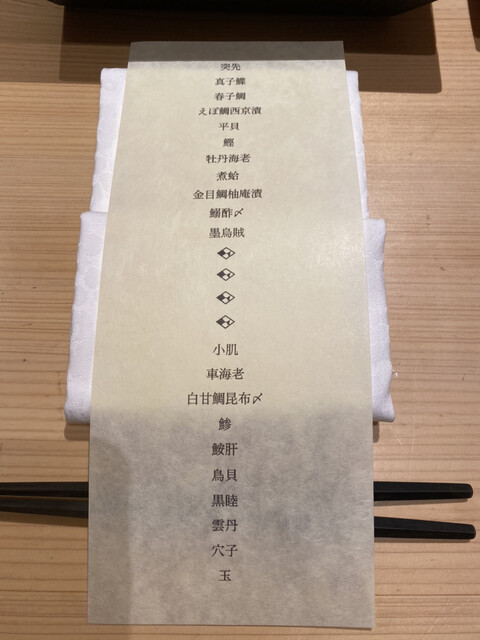 突先
真子鰈
春子鯛
えぼ鯛西京漬
平貝
鰹
牡丹海老
煮蛤
金目鯛柚庵漬
鰯酢〆
墨烏賊
小肌
車海老
白甘鯛昆布〆
鯵
鮟肝
鳥貝
黒睦
雲丹
穴子
玉